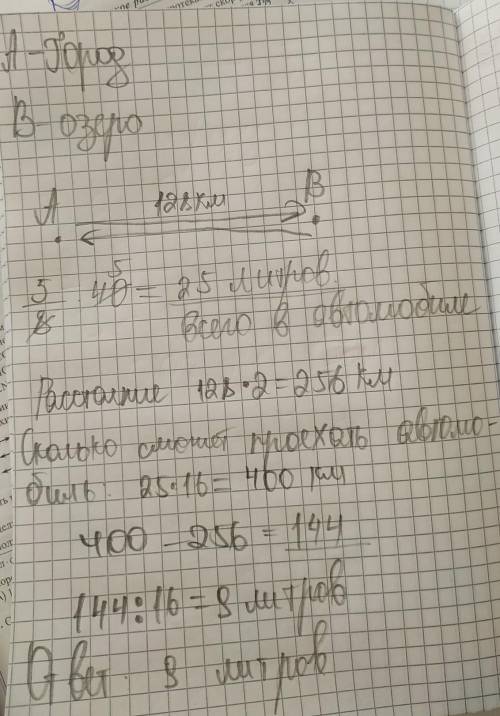 А - город
В - озеро
А 128 км В
5/8 · 40 = 25 литров
5
всего в автомобиле
Расстояние 128 · 2 = 256 км
Сколько сможет проехать автомо-
биль: 25 · 16 = 400 км
400 - 256 = 144
144 : 16 = 9 литров
Ответ: 9 литров